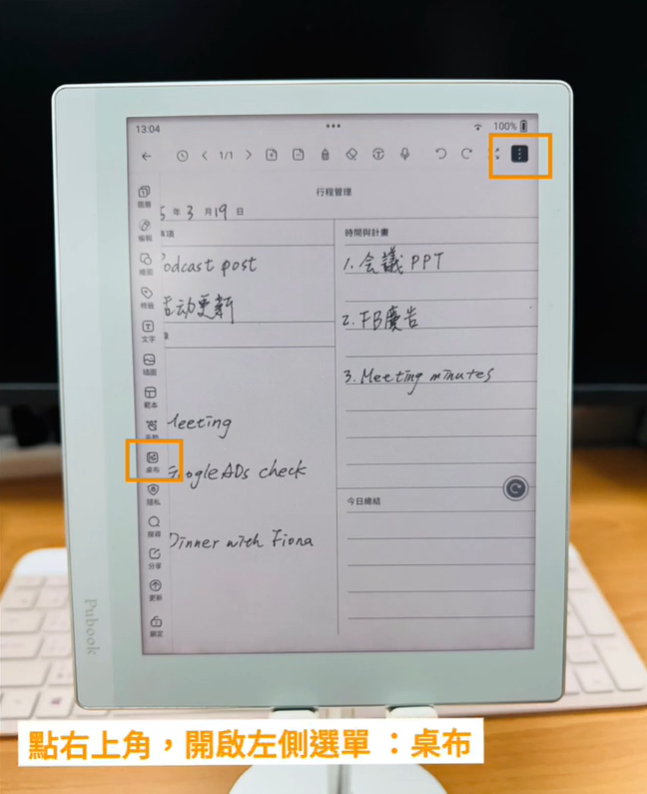 13:04
100%
1/1
行程管理
年 3 月 19 日
事項
時間與計畫
Podcast post
1. 会議 PPT
活动更新
2. FB廣告
3. Meeting minutes
Meeting
Google ADs check
今日總結
Dinner with Fiona
圖層
編輯
繪圖
標籤
文字
插圖
範本
桌布
隱私
搜尋
分享
更新
鎖定
Pubook
點右上角，開啟左側選單：桌布